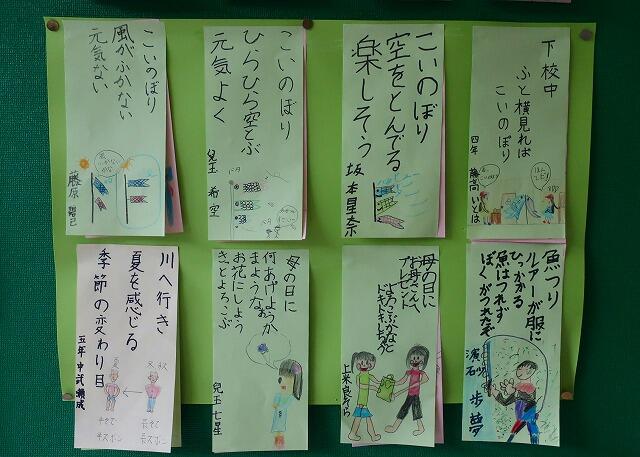 下校中
ふと横見れば
こいのぼり
四年
こいのぼり
空をとんでる
楽しそう
坂本星奈
こいのぼり
ひらひら空とぶ
元気よく
児玉 希空
こいのぼり
風がふかない
元気ない
藤原 碧己
魚つり
ルアーが服に
ひっかかる
魚はつれず
ぼくがつれたぞ
濱砂 歩夢
母の日に
お母さんへ
プレゼント
よろこぶかなと
上米良
母の日に
何あげようか
まような
お花にしよう
きっとよろこぶ
児玉 七星
川へ行き
夏を感じる
季節の変わり目
五年 中武
夏
半そで
半ズボン
長そで
長ズボン